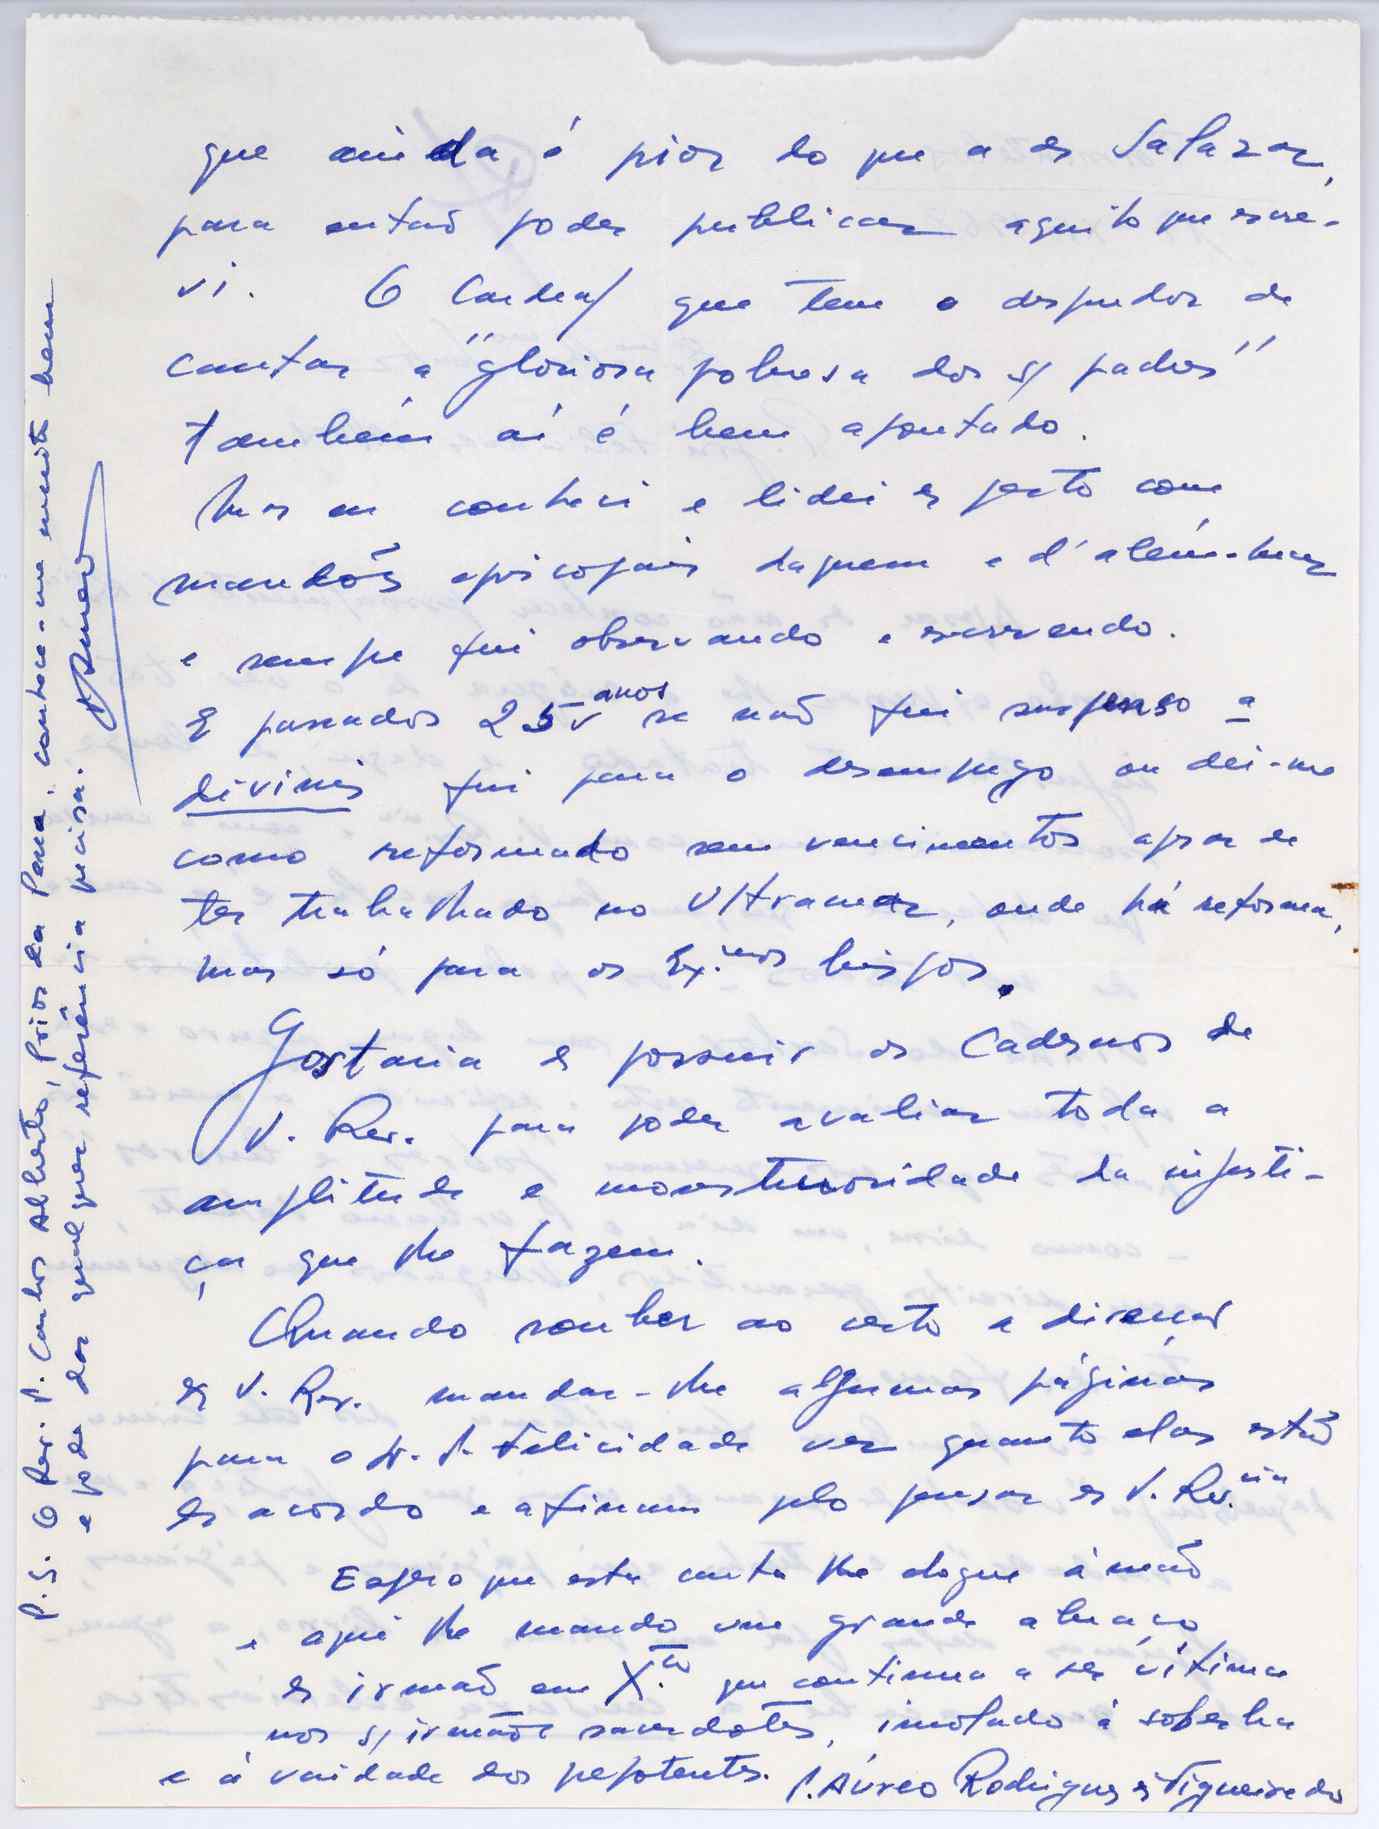 que ainda é pior do que a de Salazar,
para então poder publicar aquilo que escre-
vi. O Cardeal que tem o despudor de
cantar a "gloriosa pobresa dos s/ padres"
também aí é bem apontado.
Mas eu conheci e lidei de perto com
mandões episcopais daquem e d'além-mar
e sempre fui observando e escrevendo.
E passados 25 anos se não fui suspenso a
divinis fui para o desemprego ou dei-me
como reformado sem vencimentos apesar de
ter trabalhado no Ultramar, onde há reforma,
mas só para os Ex.mos bispos.
Gostaria de possuir os Cadernos de
V. Rev. para poder avaliar toda a
amplitude e monstruosidade da injusti-
ça que lhe fazem.
Quando souber ao certo a direcção
de V. Rev. mandar-lhe algumas páginas
para o P. Felicidade ver quanto elas estão
de acordo e afinam pelo pensar de V. Rev.cia
Espero que esta carta lhe chegue à mão
e aqui lhe mando um grande abraço
de irmão em X.to que continua a ser vítima
nos s/ irmãos sacerdotes, imolado à soberba
e à vaidade dos prepotentes. P. Áureo Rodrigues de Figueiredo
P.S. O Rev. P. Carlos Alberto, Prior da Pena, conhece-me muito bem
e pode dar qualquer referência precisa.
P. Aureo